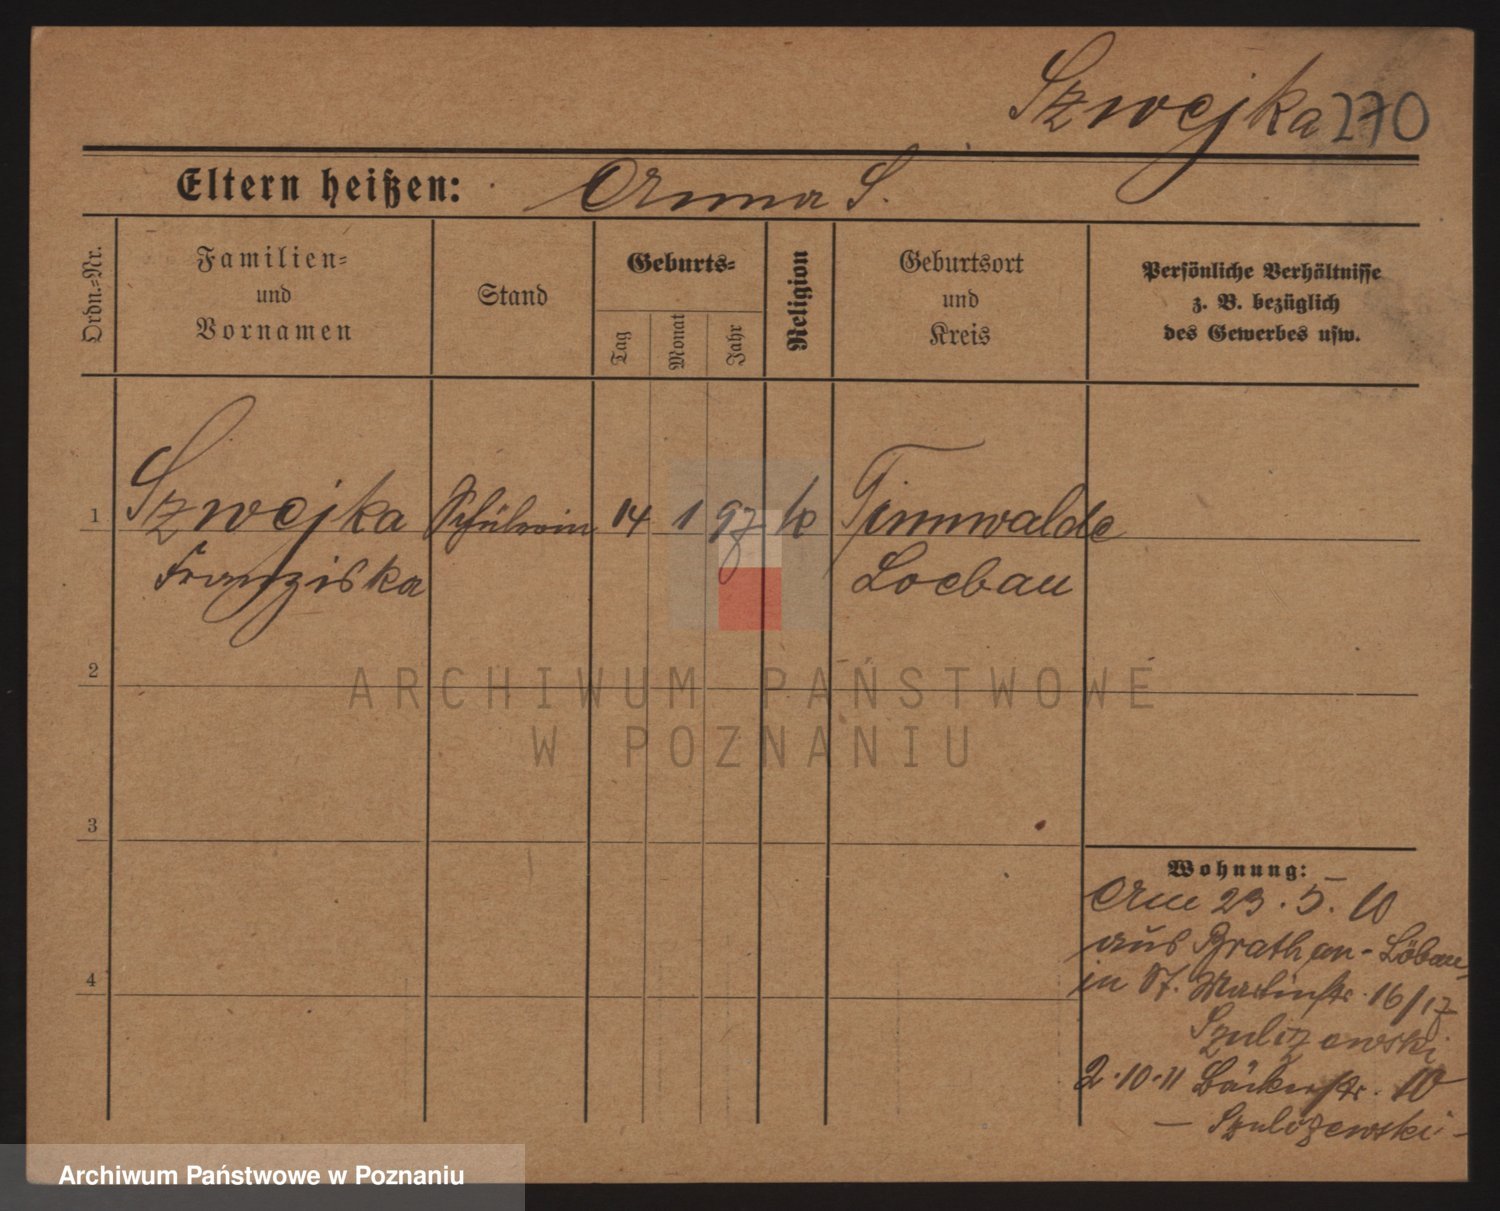 Szwejka 270
Eltern heißen: Anna S.
Ordn.-Nr.
Familien-
und
Vornamen
Stand
Geburts-
Tag
Monat
Jahr
Religion
Geburtsort
und
Kreis
Persönliche Verhältnisse
z. B. bezüglich
des Gewerbes usw.
1 Szwejka Schülerin 14 1 97 k Tinnwalde
Franziska Loebau
2
ARCHIWUM PAŃSTWOWE
W POZNANIU
3
Wohnung:
Am 23. 5. 10
aus Brathan-Löbau
in St. Martinstr. 16/17
Szulczewski
4
2.10.11 Bäckerstr. 10
— Szulczewski —
Archiwum Państwowe w Poznaniu